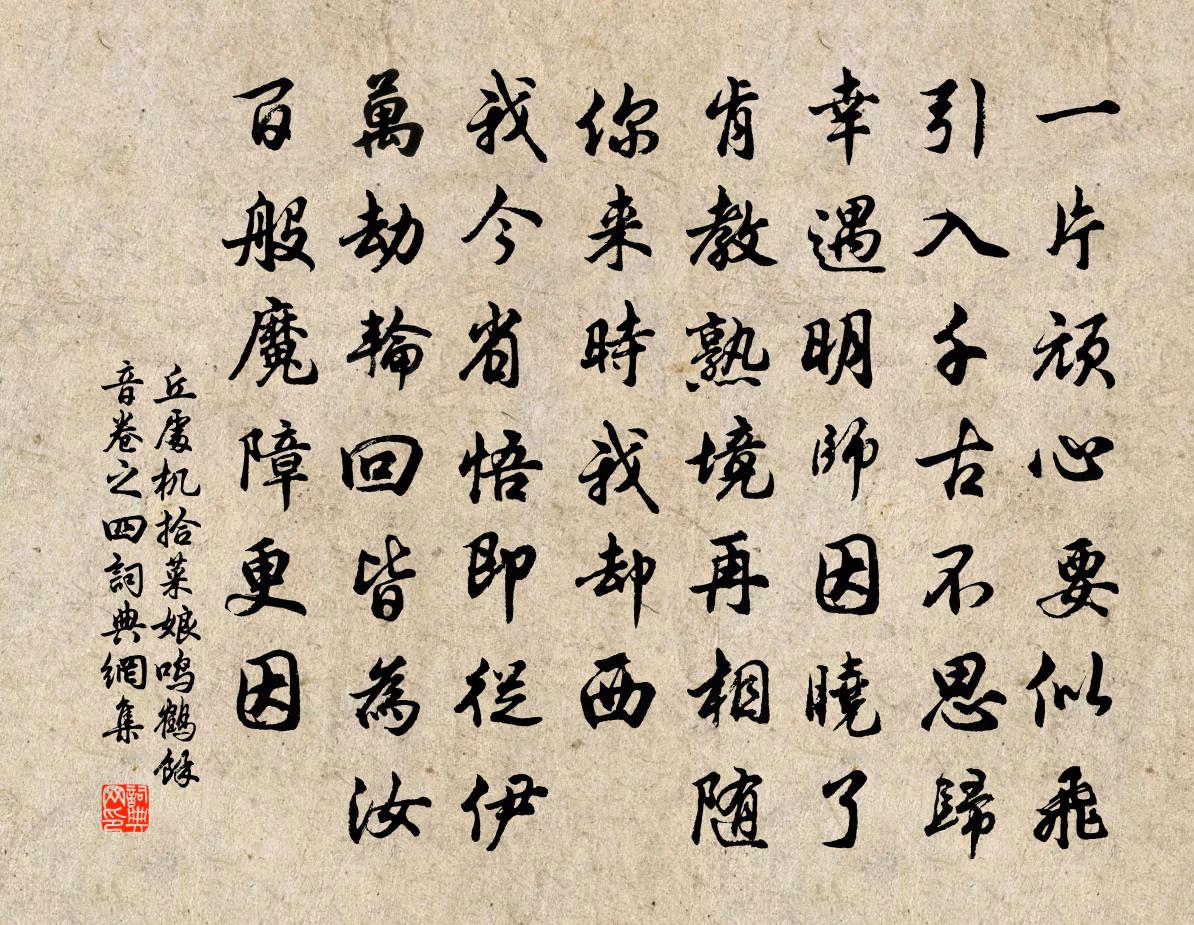 一片頑心要似飛
引入千古不思歸
幸遇明師因曉了
肯教熟境再相随
你来時我却西
我今省悟即從伊
萬劫輪回皆為汝
百般魔障更因
丘處机拾菜娘鸣鶴餘
音卷之四詞典網集
詞典
网印